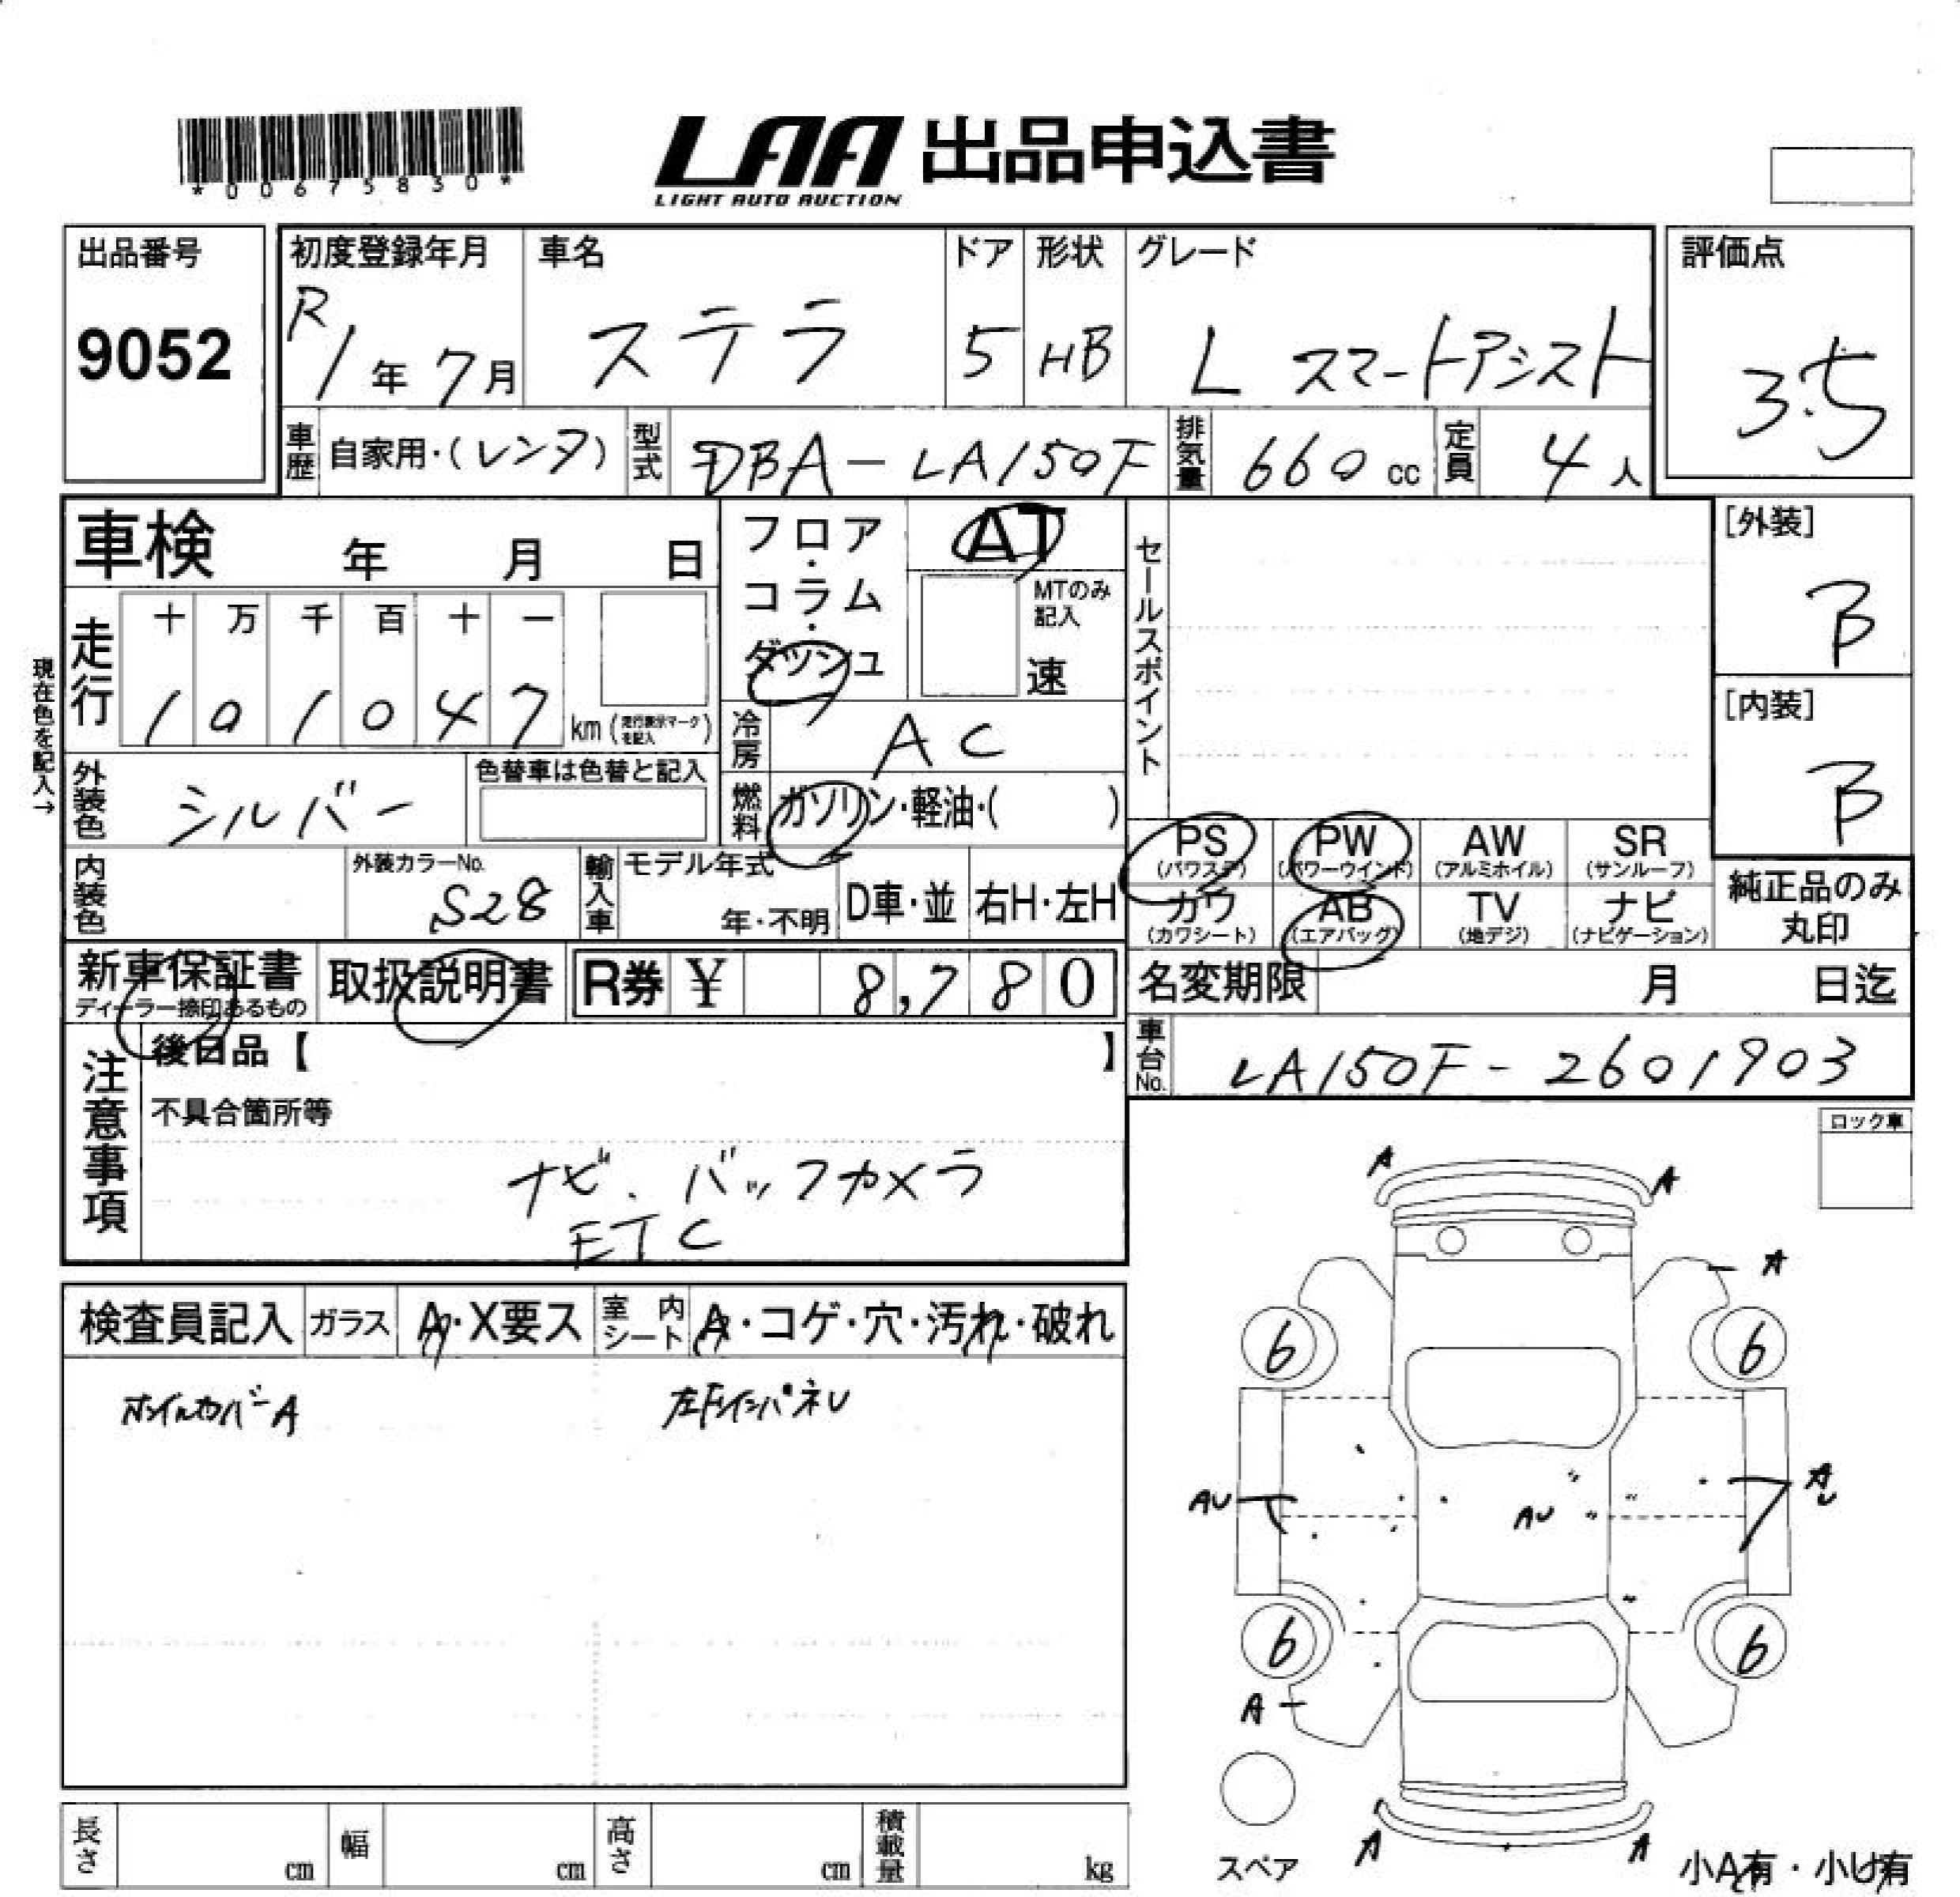 *00675830*
LAA 出品申込書
LIGHT AUTO AUCTION
出品番号
9052
初度登録年月
R1年7月
車名
ステラ
ドア
5
形状
HB
グレード
L スマートアシスト
評価点
3.5
車歴 自家用・(レンタ)
型式 DBA-LA150F
排気量 660cc
定員 4人
車検 年 月 日
フロア・コラム・ダッシュ
AT
MTのみ記入
速
セールスポイント
[外装]
B
[内装]
B
現在色を記入→
走行
十 万 千 百 十 一
1 0 1 0 4 7 km (走行表示マークを記入)
冷房 AC
外装色 シルバー
色替車は色替と記入
燃料 ガソリン・軽油・( )
内装色
外装カラーNo.
S28
輸入車
モデル年式
年・不明
D車・並
右H・左H
PS (パワステ)
PW (パワーウインド)
AW (アルミホイル)
SR (サンルーフ)
カワ (カワシート)
AB (エアバッグ)
TV (地デジ)
ナビ (ナビゲーション)
純正品のみ丸印
新車保証書
ディーラー捺印あるもの
取扱説明書
R券 ¥ 8,780
名変期限 月 日迄
車台No. LA150F-2601903
注意事項
後日品【 】
不具合箇所等
ナビ.バックカメラ
ETC
ロック車
検査員記入
ガラス A・X要ス
室内シート A・コゲ・穴・汚れ・破れ
ホイルカバーA
A A
A
6 6
AU AU AU
6 6
A
A A
スペア
小A有・小U有
長さ cm
幅 cm
高さ cm
積載量 kg